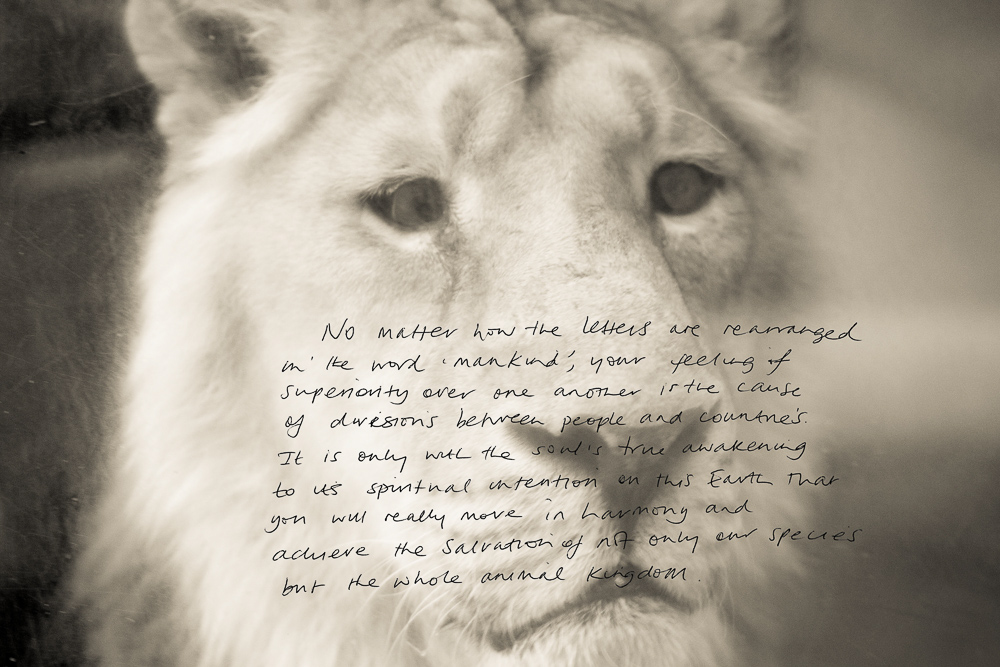 No matter how the letters are rearranged
in the word 'mankind', your feeling of
superiority over one another is the cause
of divisions between people and countries.
It is only with the soul's true awakening
to its spiritual intention on this Earth that
you will really move in harmony and
achieve the Salvation of not only our species
but the whole animal kingdom.